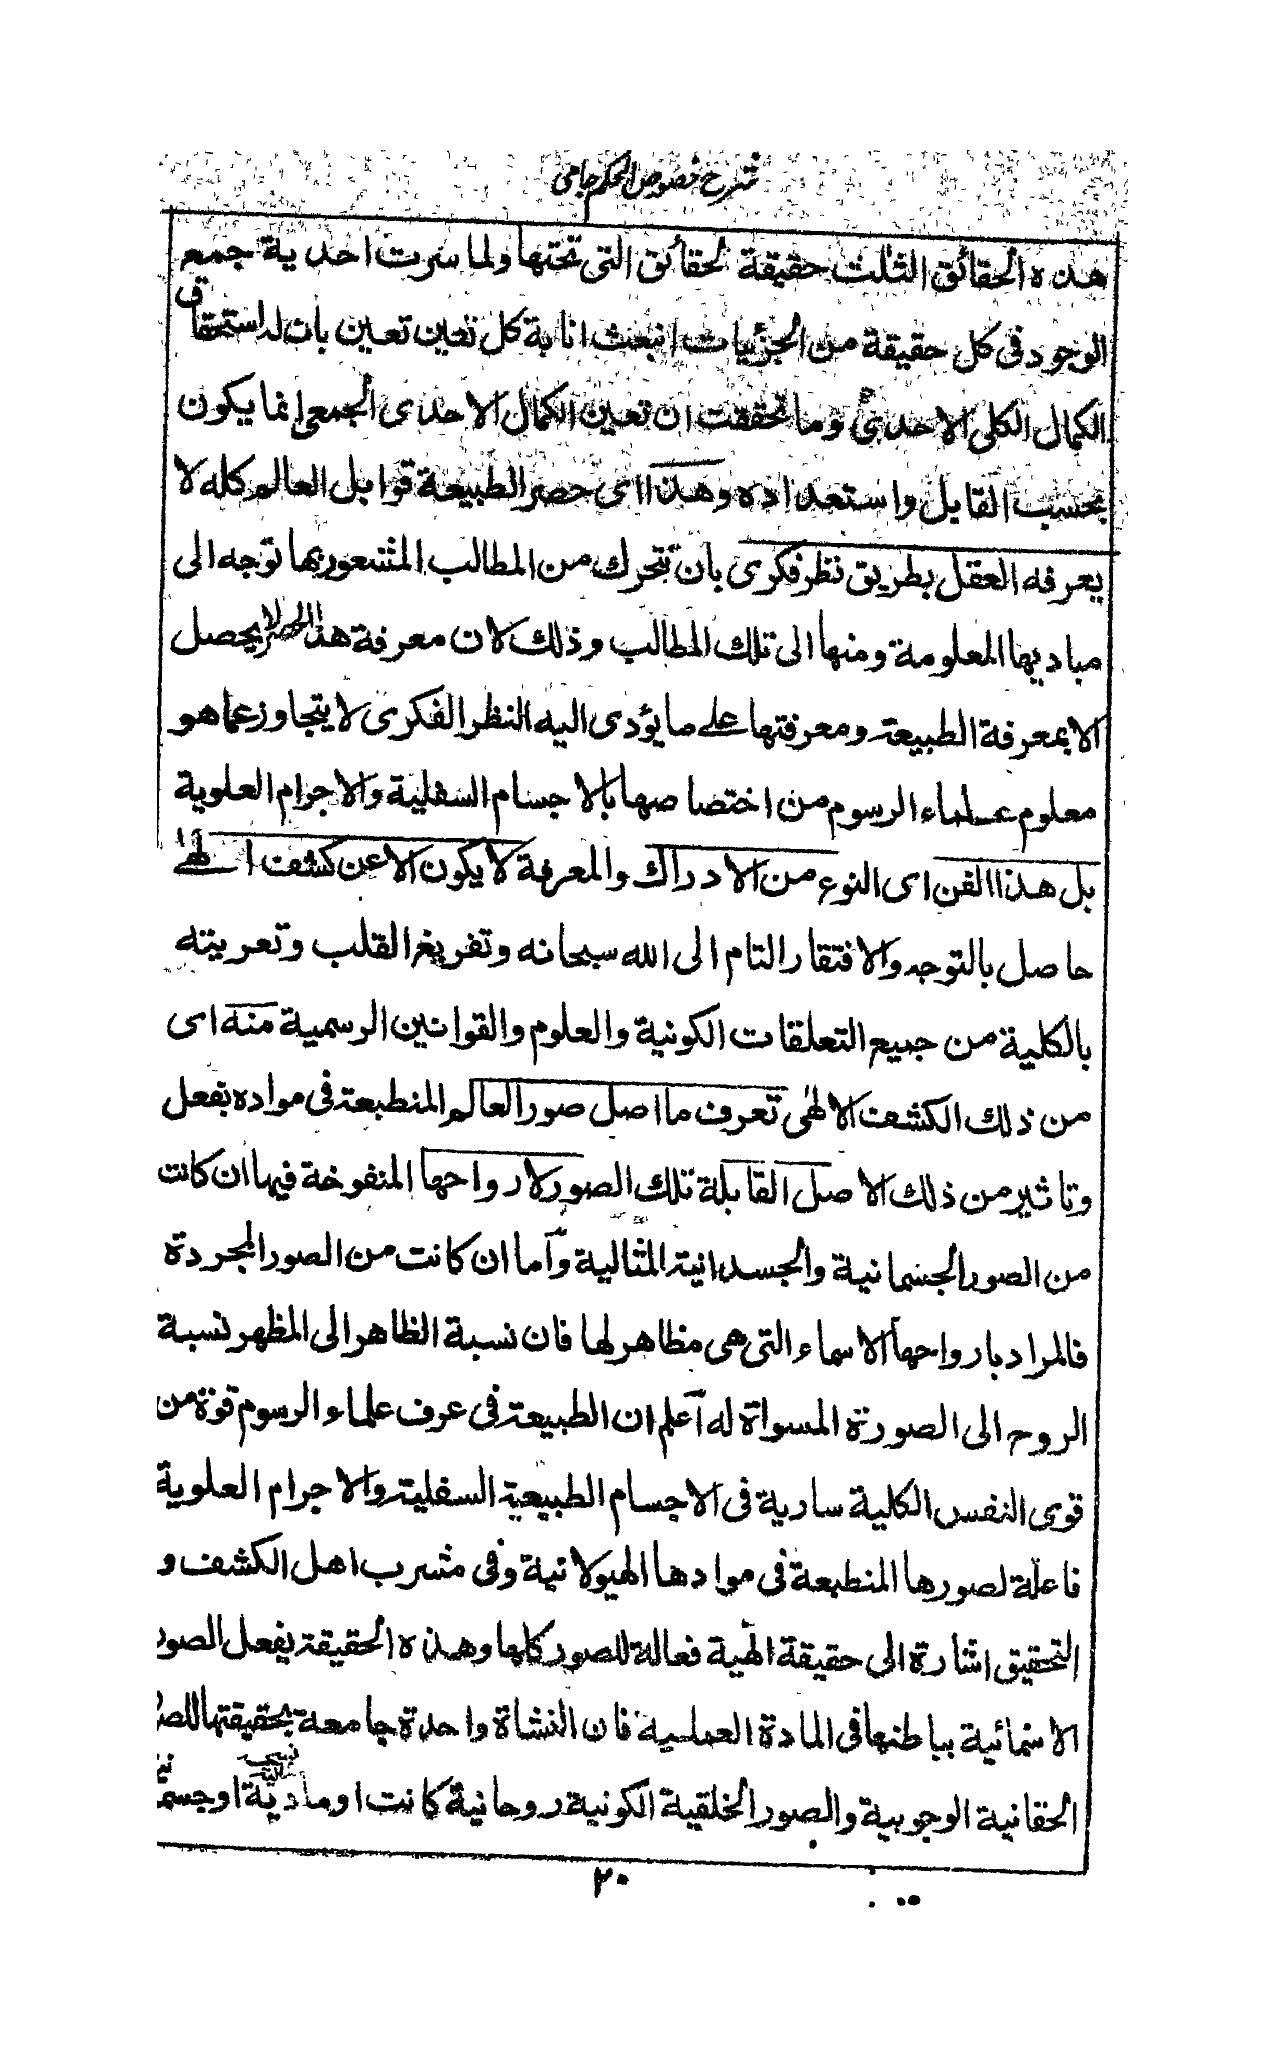 شرح فصوص الحكم جامى
هذه الحقائق الثلث حقيقة الحقائق التى تحتها ولما سرت احدية جمع
الوجود فى كل حقيقة من الجزئيات انبعث انابة كل تعين تعين بان له استحقاق
الكمال الكلى الاحدى وما تحققت ان تعين الكمال الاحدى الجمعى انما يكون
بحسب القابل واستعداده وهذا اى حصر الطبيعة قوابل العالم كله لا
يعرفه العقل بطريق نظر فكرى بان تتحرك من المطالب المشعور بها توجه الى
مباديها المعلومة ومنها الى تلك المطالب وذلك لان معرفة هذا الحصر لا يحصل
الا بمعرفة الطبيعة ومعرفتها على ما يؤدى اليه النظر الفكرى لا يتجاوز عما هو
معلوم علماء الرسوم من اختصاصها بالاجسام السفلية والاجرام العلوية
بل هذا الفن اى النوع من الادراك والمعرفة لا يكون الا عن كشف الهى
حاصل بالتوجه والافتقار التام الى الله سبحانه وتفريغ القلب وتعريته
بالكلية من جميع التعلقات الكونية والعلوم والقوانين الرسمية منه اى
من ذلك الكشف الالهى تعرف ما اصل صور العالم المنطبعة فى مواده بفعل
وتاثير من ذلك الاصل القابلة تلك الصور لارواحها المنفوخة فيها ان كانت
من الصور الجسمانية والجسدانية المثالية واما ان كانت من الصور المجردة
فالمراد بارواحها الاسماء التى هى مظاهر لها فان نسبة الظاهر الى المظهر نسبة
الروح الى الصورة المسواة له اعلم ان الطبيعة فى عرف علماء الرسوم قوة من
قوى النفس الكلية سارية فى الاجسام الطبيعية السفلية والاجرام العلوية
فاعلة لصورها المنطبعة فى موادها الهيولانية وفى مشرب اهل الكشف و
التحقيق اشارة الى حقيقة الهية فعالة للصور كلها وهذه الحقيقة يفعل الصور
الاسمائية بباطنها فى المادة العمائية فان النشاة واحدة جامعة بحقيقتها للصور
الحقانية الوجوبية والصور الخلقية الكونية روحانية كانت او مادية او جسمانية
٢٠